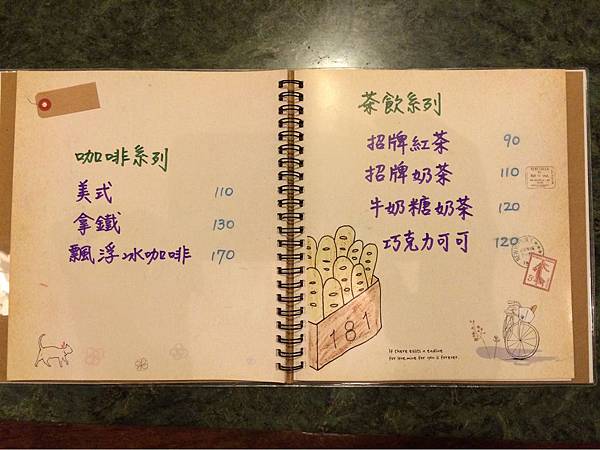 咖啡系列
美式 110
拿鐵 130
飄浮冰咖啡 170
茶飲系列
招牌紅茶 90
招牌奶茶 110
牛奶糖奶茶 120
巧克力可可 120
181
If there exists a endline
for love,mine for you is forever.